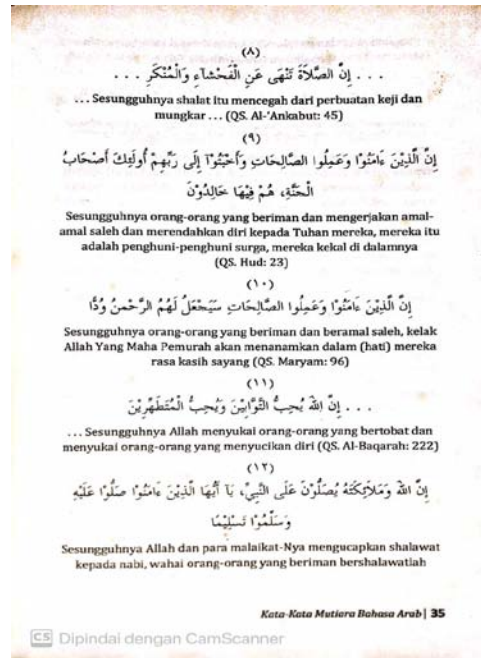 (٨)
. . . إِنَّ الصَّلَاةَ تَنْهَى عَنِ الْفَحْشَآءِ وَالْمُنْكَرِ . . .
... Sesungguhnya shalat itu mencegah dari perbuatan keji dan
mungkar ... (QS. Al-'Ankabut: 45)
(٩)
إِنَّ الَّذِيْنَ ءَامَنُوْا وَعَمِلُوا الصَّالِحَاتِ وَأَخْبَتُوْآ إِلَى رَبِّهِمْ أُولَئِكَ أَصْحَابُ
الْجَنَّةِ، هُمْ فِيْهَا خَالِدُوْنَ
Sesungguhnya orang-orang yang beriman dan mengerjakan amal-
amal saleh dan merendahkan diri kepada Tuhan mereka, mereka itu
adalah penghuni-penghuni surga, mereka kekal di dalamnya
(QS. Hud: 23)
(١٠)
إِنَّ الَّذِيْنَ ءَامَنُوْا وَعَمِلُوا الصَّالِحَاتِ سَيَجْعَلُ لَهُمُ الرَّحْمنُ وُدًّا
Sesungguhnya orang-orang yang beriman dan beramal saleh, kelak
Allah Yang Maha Pemurah akan menanamkan dalam (hati) mereka
rasa kasih sayang (QS. Maryam: 96)
(١١)
. . . إِنَّ اللهَ يُحِبُّ التَّوَّابِيْنَ وَيُحِبُّ الْمُتَطَهِّرِيْنَ
... Sesungguhnya Allah menyukai orang-orang yang bertobat dan
menyukai orang-orang yang menyucikan diri (QS. Al-Baqarah: 222)
(١٢)
إِنَّ اللهَ وَمَلَائِكَتَهُ يُصَلُّوْنَ عَلَى النَّبِيِّ، يَآ أَيُّهَا الَّذِيْنَ ءَامَنُوْا صَلُّوْا عَلَيْهِ
وَسَلِّمُوْا تَسْلِيْمًا
Sesungguhnya Allah dan para malaikat-Nya mengucapkan shalawat
kepada nabi, wahai orang-orang yang beriman bershalawatlah
Kata-Kata Mutiara Bahasa Arab| 35
CS Dipindai dengan CamScanner